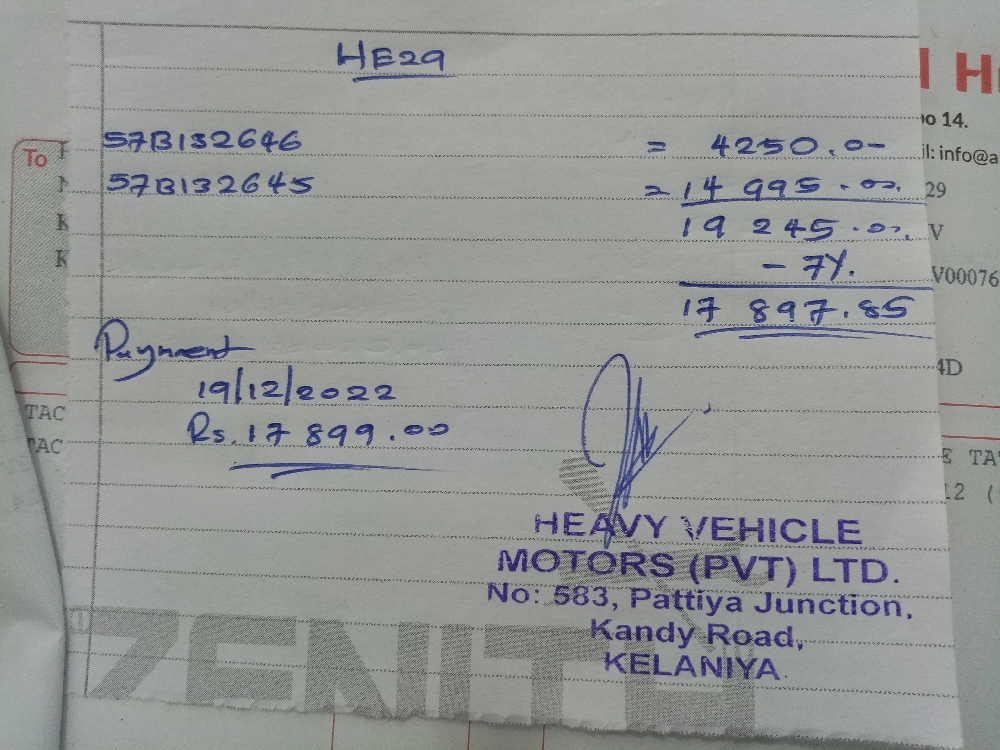 HE29
57B132646 = 4250.00
57B132645 = 14 995.00
19 245.00
- 7%
17 897.85
Payment
19/12/2022
Rs. 17 899.00
HEAVY VEHICLE
MOTORS (PVT) LTD.
No: 583, Pattiya Junction,
Kandy Road,
KELANIYA.
ZENITH
To
14.
info@a
29
V
V00076
4D
TAC
TAC
E TA
12 (